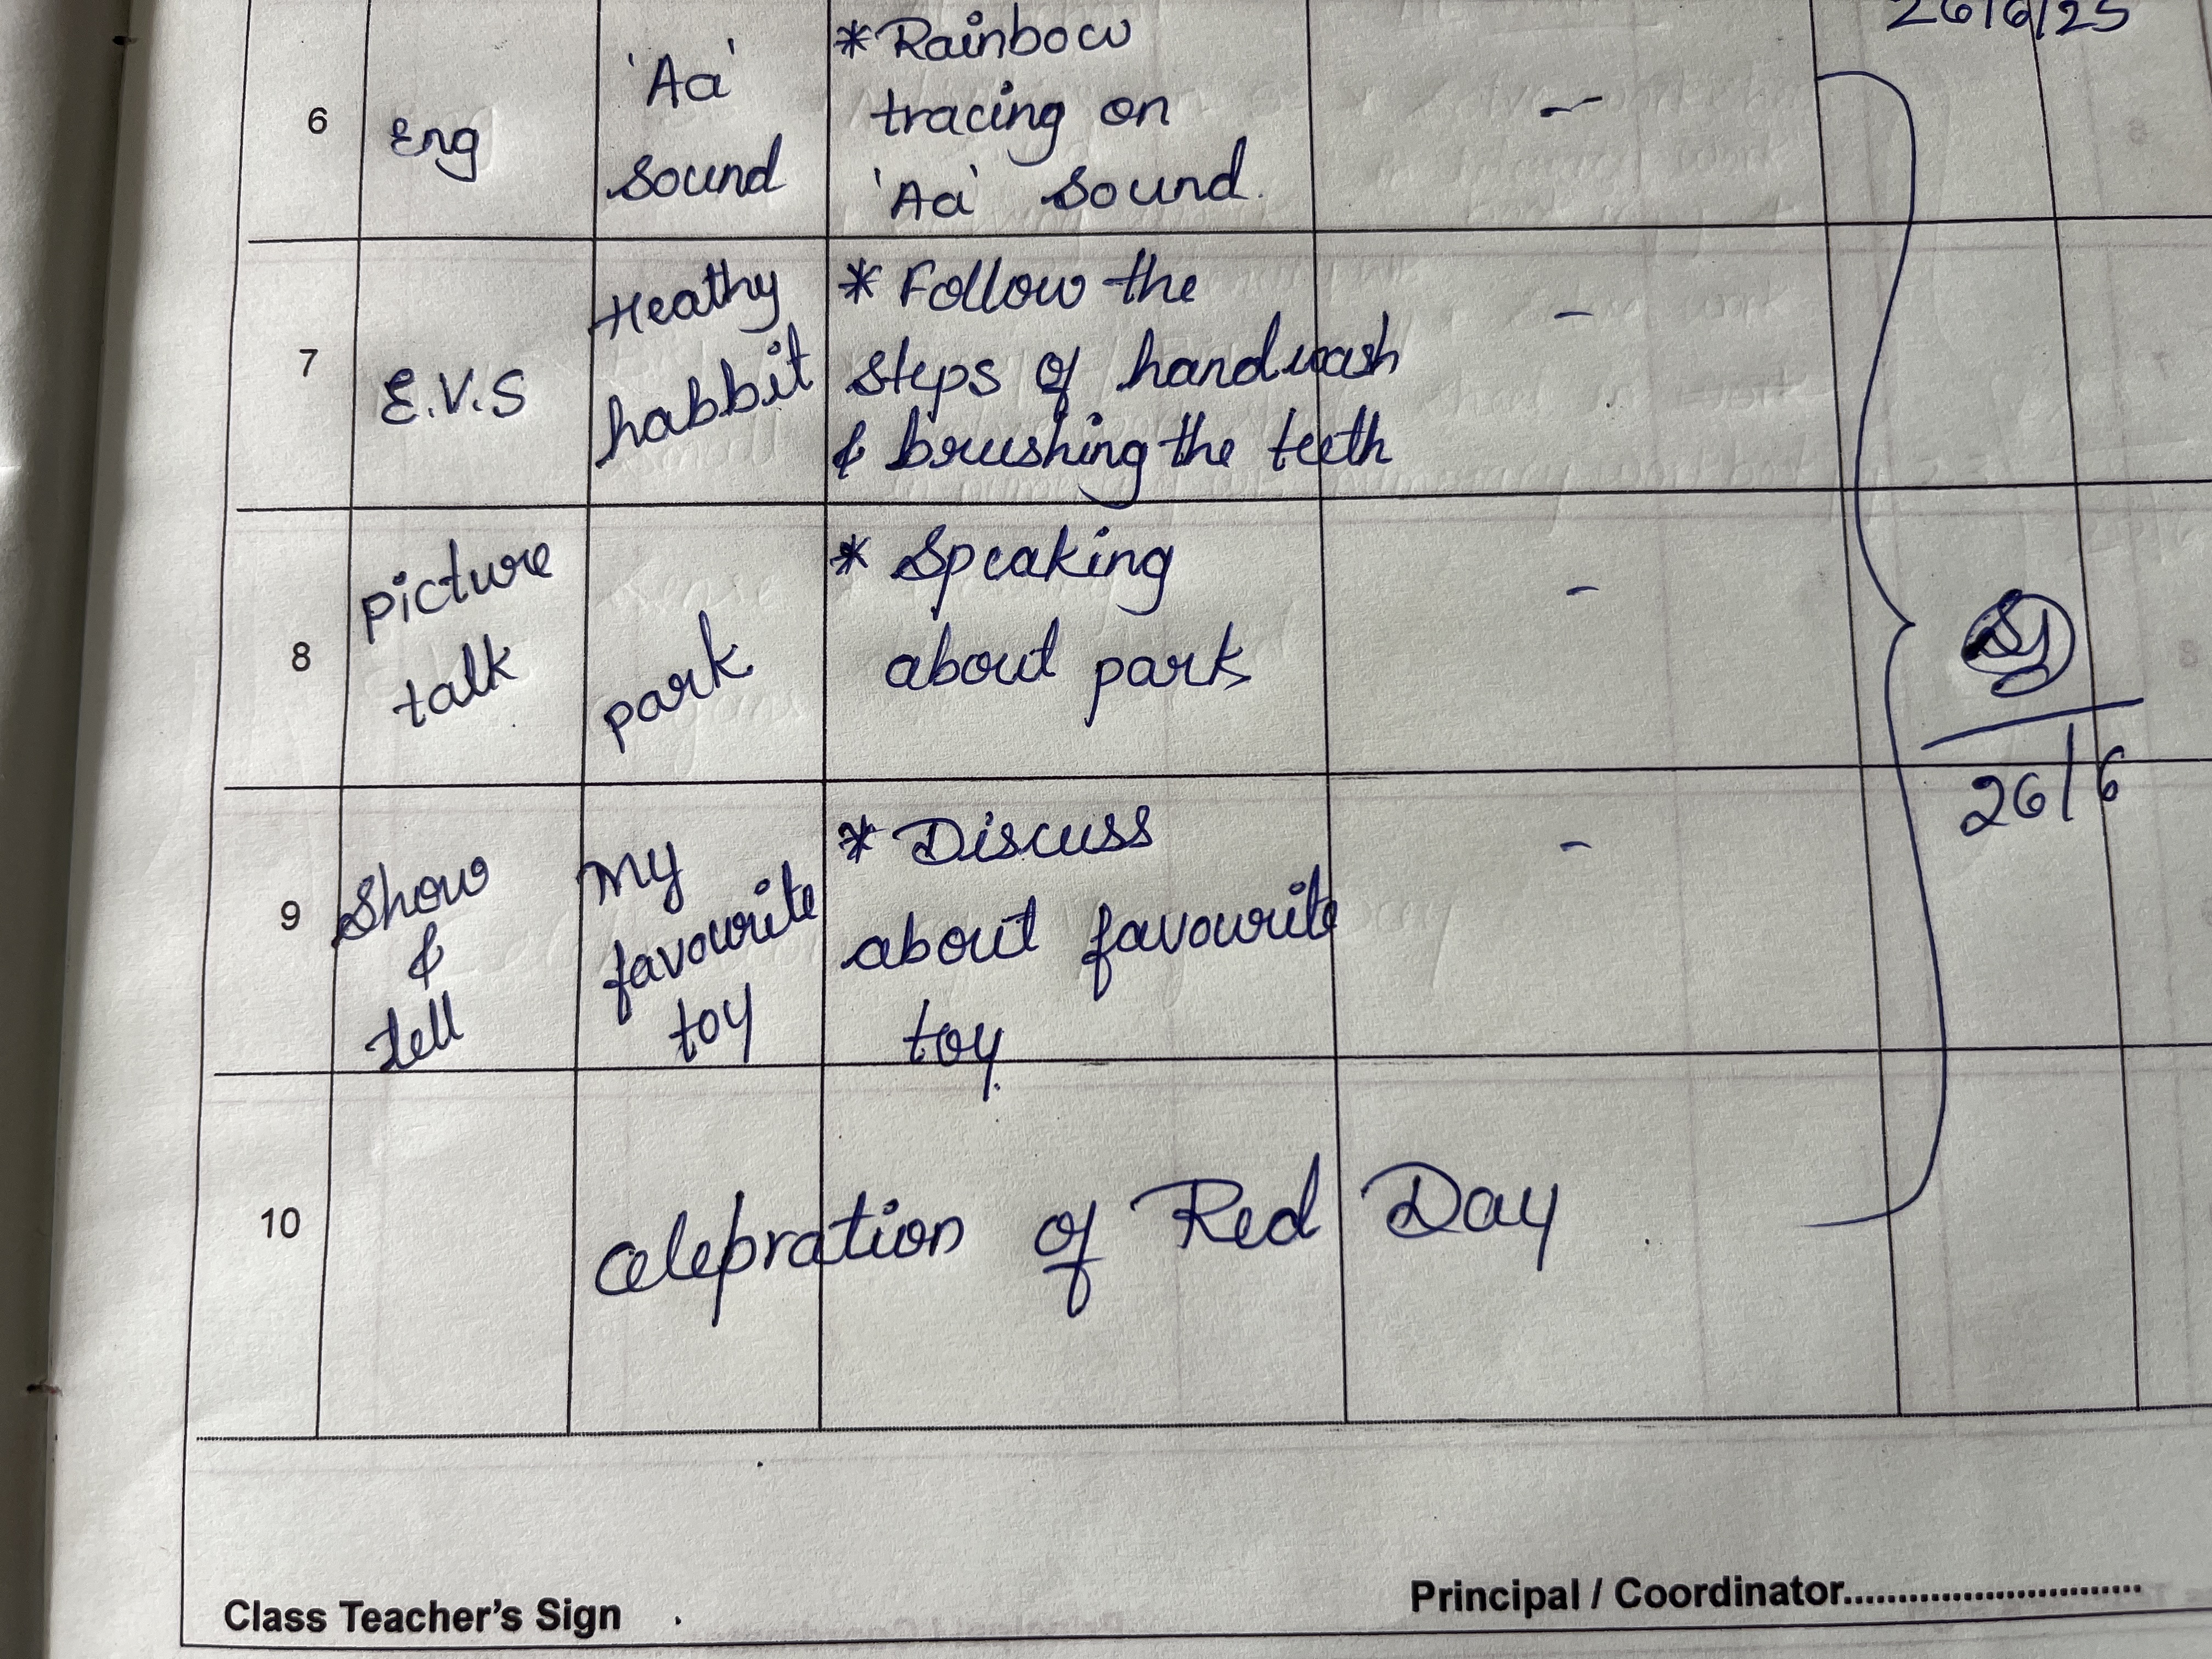 26/6/25
6
Eng
'Aa'
sound
* Rainbow
tracing on
'Aa' sound.
-
7
E.V.S
Heathy
habbit
* Follow the
steps of handwash
& brushing the teeth
-
8
picture
talk
park
* Speaking
about park
-
26/6
9
Show
&
tell
My
favourite
toy
* Discuss
about favourite
toy.
-
10
Celebration of Red Day
Class Teacher's Sign
Principal / Coordinator..............................